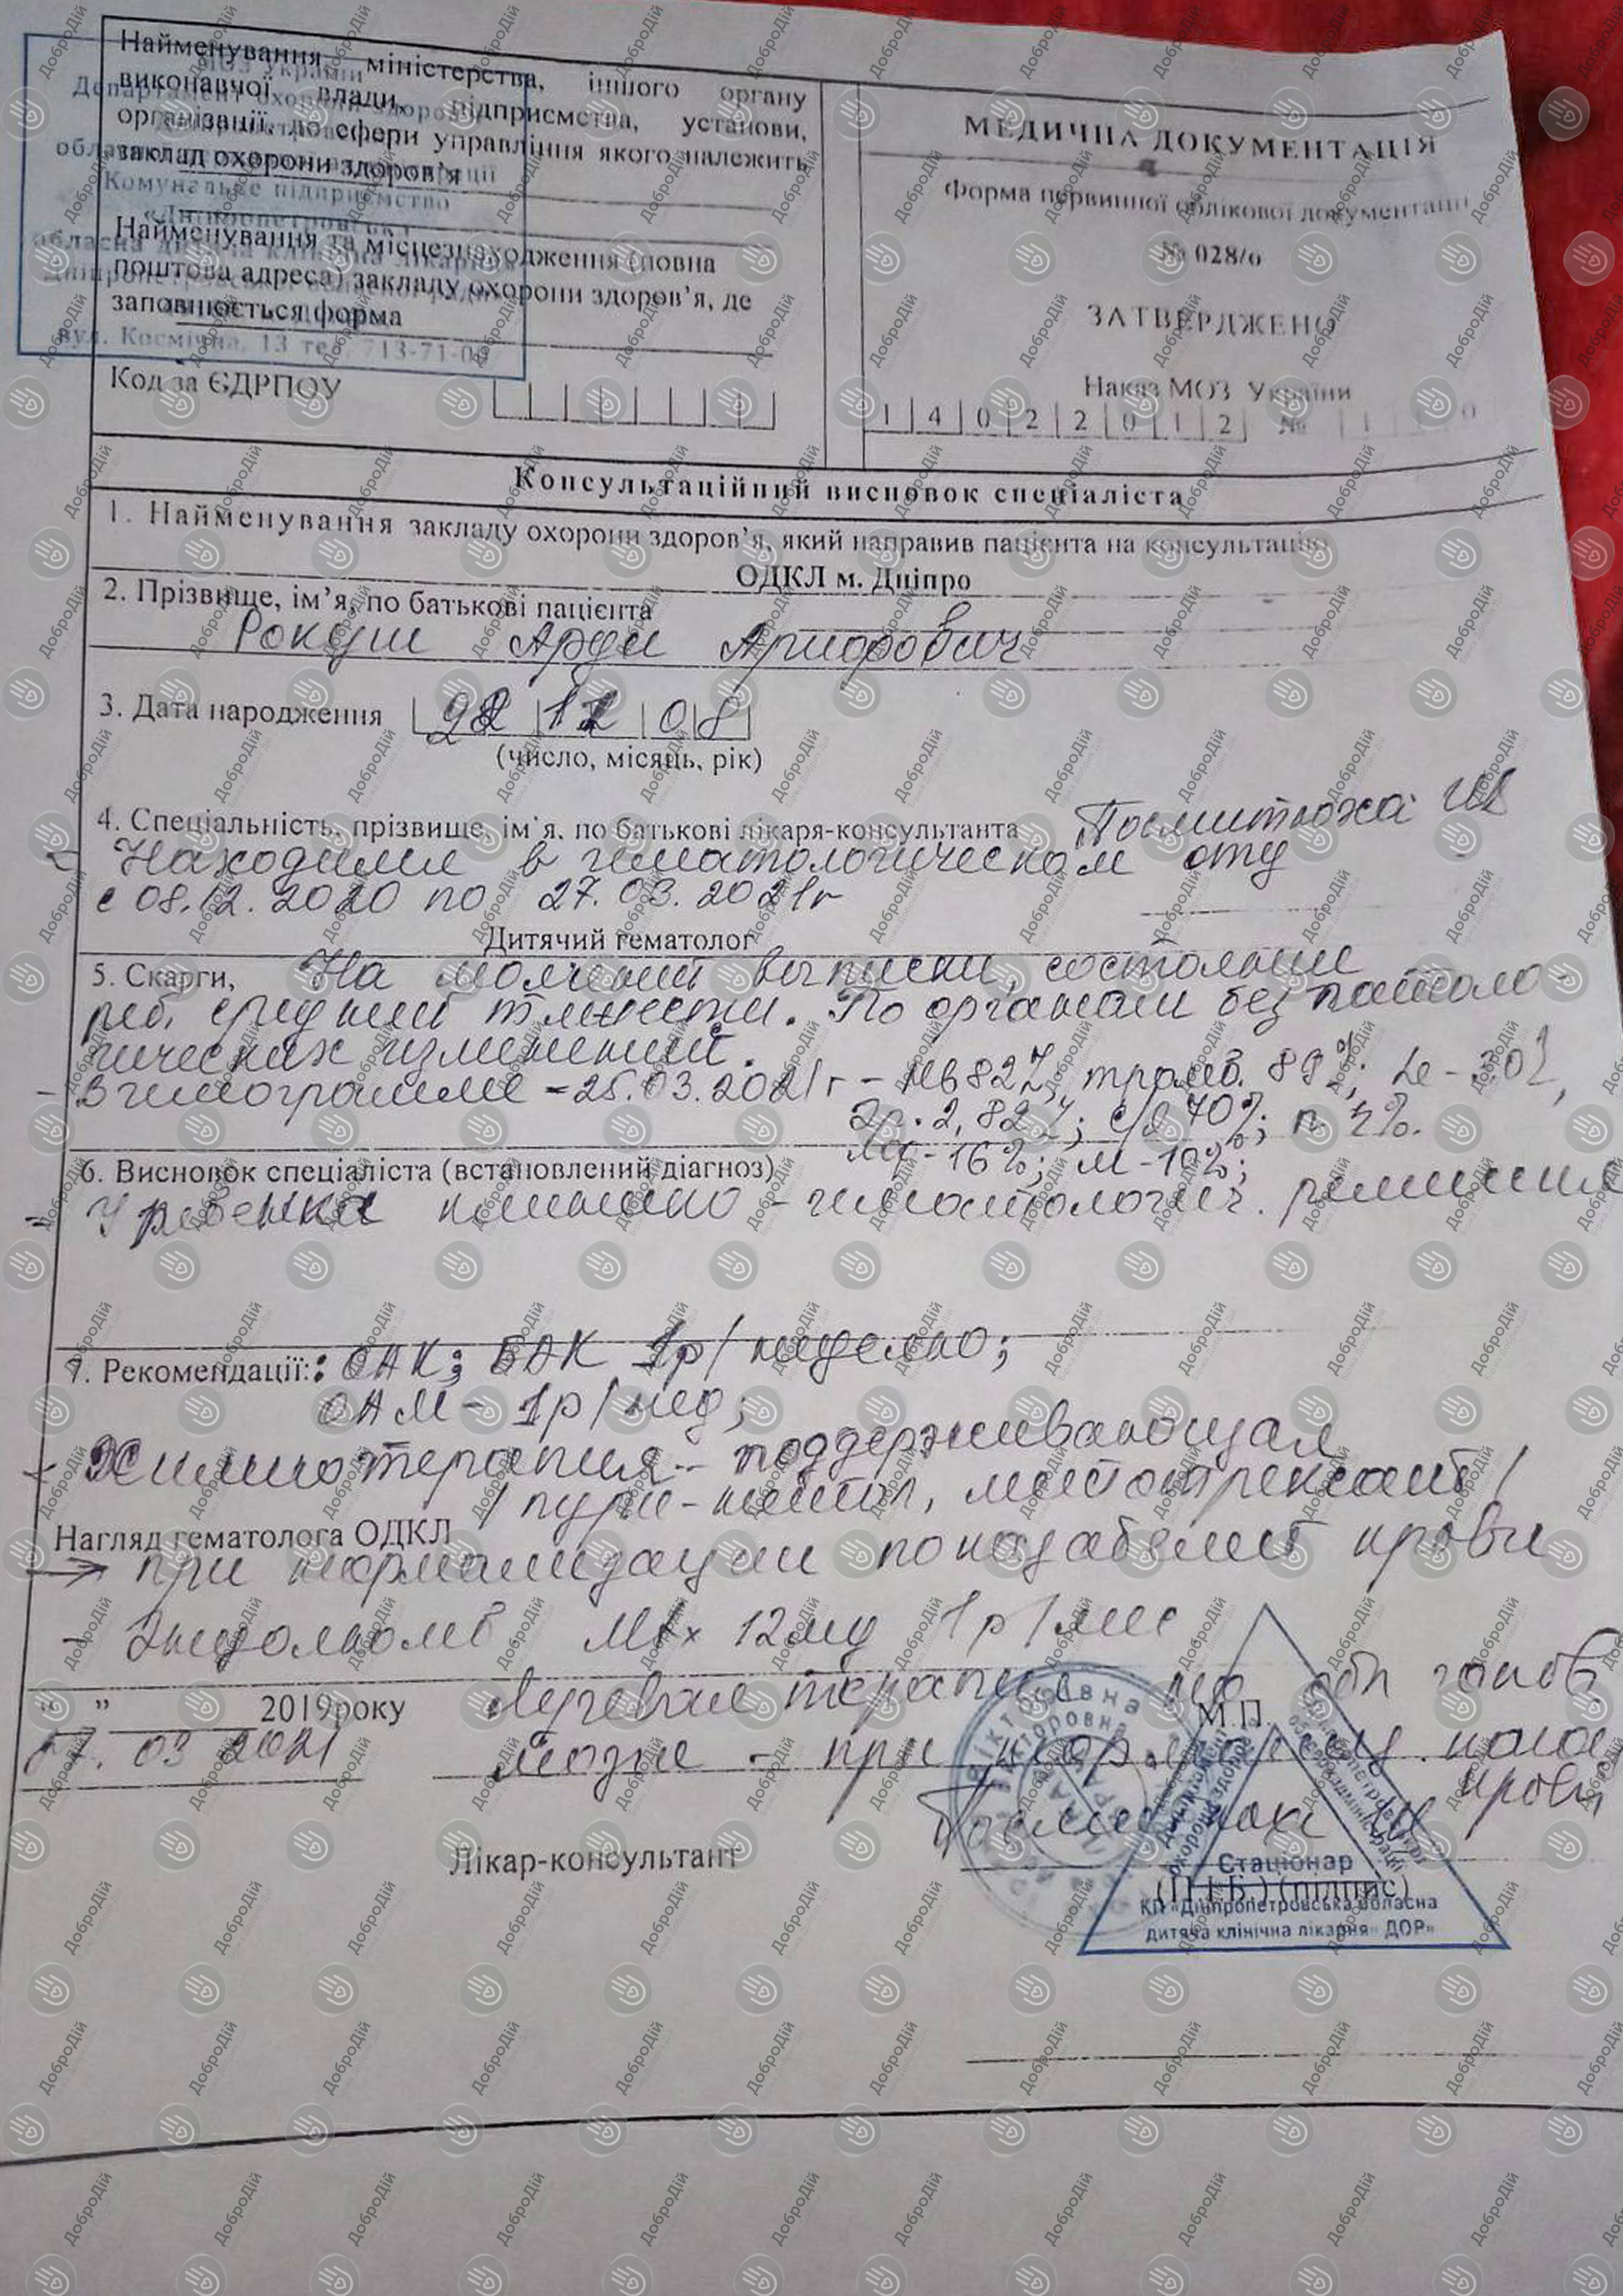 Найменування міністерства, іншого органу
виконавчої влади, підприємства, установи,
організації, до сфери управління якого належить
заклад охорони здоров'я
МОЗ України
Комунальне підприємство
вул. Космічна, 13 тел. 713-71-09
Найменування та місцезнаходження (повна
поштова адреса) закладу охорони здоров'я, де
заповнюється форма
Код за ЄДРПОУ
МЕДИЧНА ДОКУМЕНТАЦІЯ
Форма первинної облікової документації
№ 028/о
ЗАТВЕРДЖЕНО
Наказ МОЗ України
1 4 0 2 2 0 1 2 №
Консультаційний висновок спеціаліста
1. Найменування закладу охорони здоров'я, який направив пацієнта на консультацію
ОДКЛ м. Дніпро
2. Прізвище, ім'я, по батькові пацієнта
Рокуш Арди Арифович
3. Дата народження 12 08
(число, місяць, рік)
4. Спеціальність, прізвище, ім'я, по батькові лікаря-консультанта
Находился в гематологическом отд
с 08.12.2020 по 27.03.2021г
Дитячий гематолог
5. Скарги, На момент выписки, состояние
реб. средней тяжести. По органам без патоло-
гических изменений.
- В гемограмме - 25.03.2021г - Нв 82 , тромб. 89 ; Le -
Эр. 2,82 ; с/я 70%; п 4%.
16%; м - 10%;
6. Висновок спеціаліста (встановлений діагноз)
- У ребенка клинико - гематологич. ремиссия
7. Рекомендації: ОАК; БАК 1р/неделю;
ОАМ - 1р/нед;
- Химиотерапия - поддерживающая
/ пури-нетол, метотрексат /
Нагляд гематолога ОДКЛ
→ при нормализации показателей крови
- Эндолюмб Мtx 12мг 1р/мес
“ ” 2019року
27.03 2021
Лучевая терапия на обл голов.
мозга - при нормализац. пока
крови
М.П.
Лікар-консультант
(П.І.Б.) (підпис)
Стаціонар
КП «Дніпропетровська обласна
дитяча клінічна лікарня» ДОР»
ДоброДій